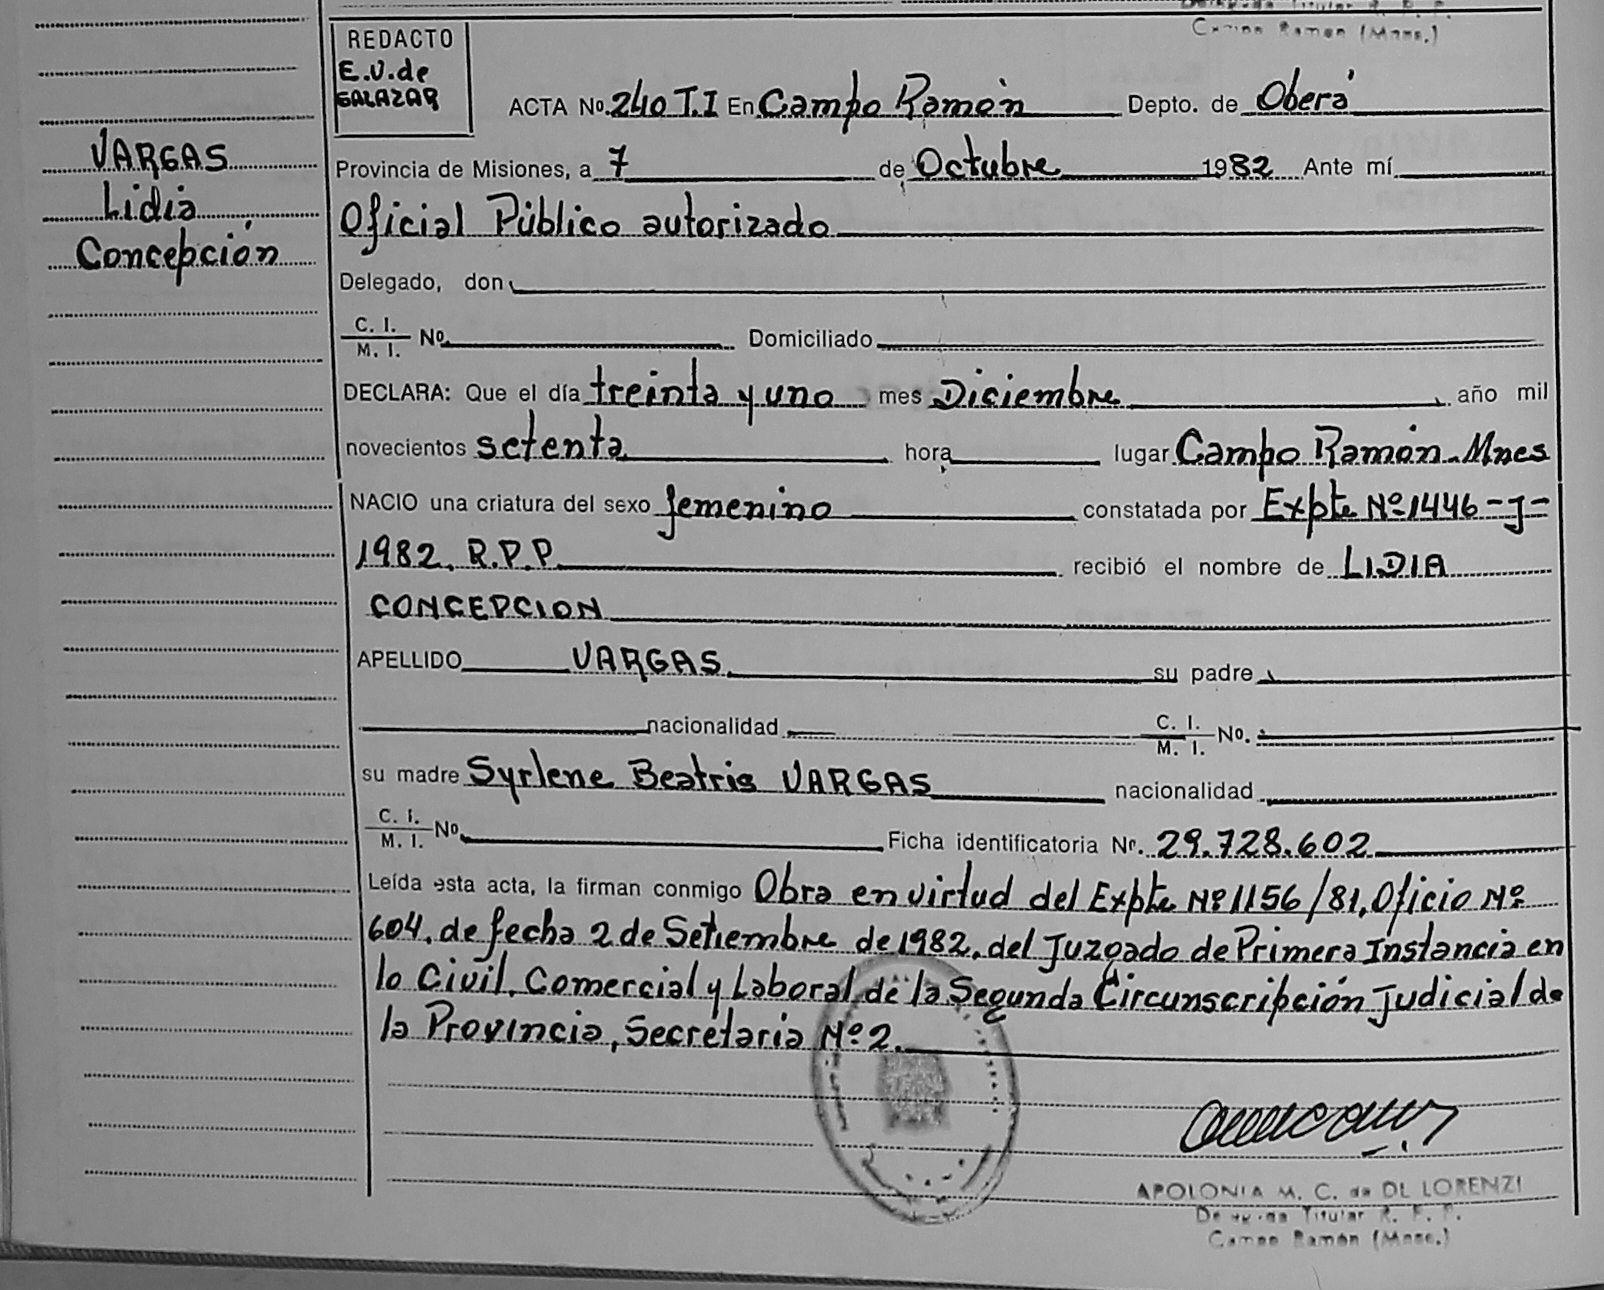 Campo Ramon (Mnes.)
REDACTO
E.V. de
SALAZAR
ACTA No. 240 T.I En Campo Ramón Depto. de Oberá
VARGAS
Lidia
Concepción
Provincia de Misiones, a 7 de Octubre 1982 Ante mí
Oficial Público autorizado
Delegado, don
C. I.
M. I. No. Domiciliado
DECLARA: Que el día treinta y uno mes Diciembre año mil
novecientos setenta hora lugar Campo Ramón - Mnes
NACIO una criatura del sexo femenino constatada por Expte Nº 1446 - J -
1982. R.P.P. recibió el nombre de LIDIA
CONCEPCION
APELLIDO VARGAS su padre
nacionalidad C. I.
M. I. No.
su madre Syrlene Beatris VARGAS nacionalidad
C. I.
M. I. No. Ficha identificatoria Nº. 29.728.602
Leída esta acta, la firman conmigo Obra en virtud del Expte Nº 1156/81, Oficio Nº
604, de fecha 2 de Setiembre de 1982, del Juzgado de Primera Instancia en
lo Civil, Comercial y Laboral, de la Segunda Circunscripción Judicial de
la Provincia, Secretaria Nº 2.
APOLONIA M. C. de DE LORENZI
Titular R. P. P.
Campo Ramón (Mnes.)